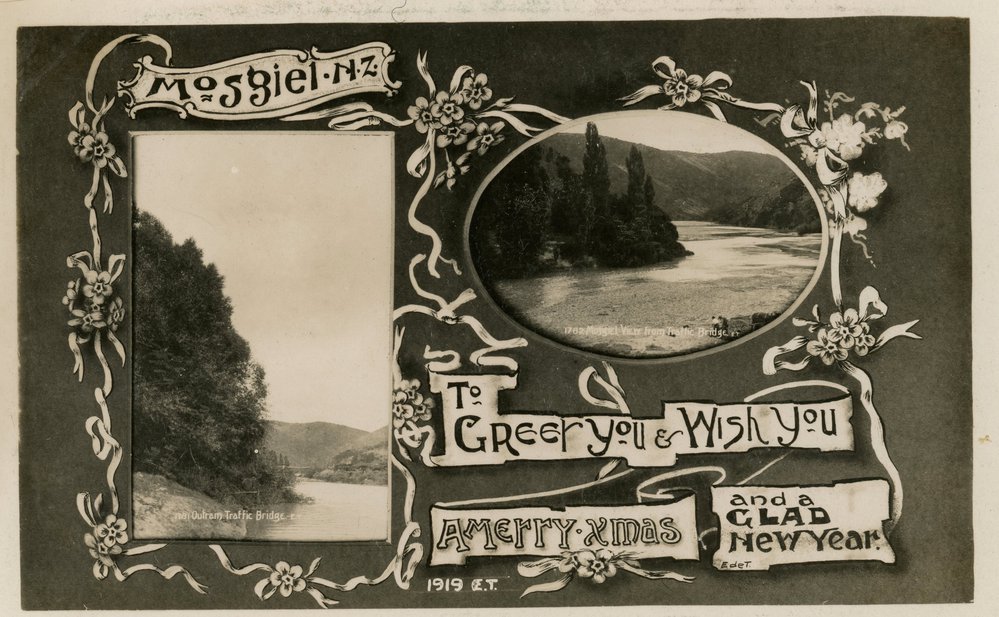 Mosgiel. N.Z.
1782 Mosgiel View from Traffic Bridge. E.T.
To
Greet you & Wish you
1781 Outram Traffic Bridge.
A Merry. Xmas
and a
GLAD
New Year.
E de T.
1919 E.T.